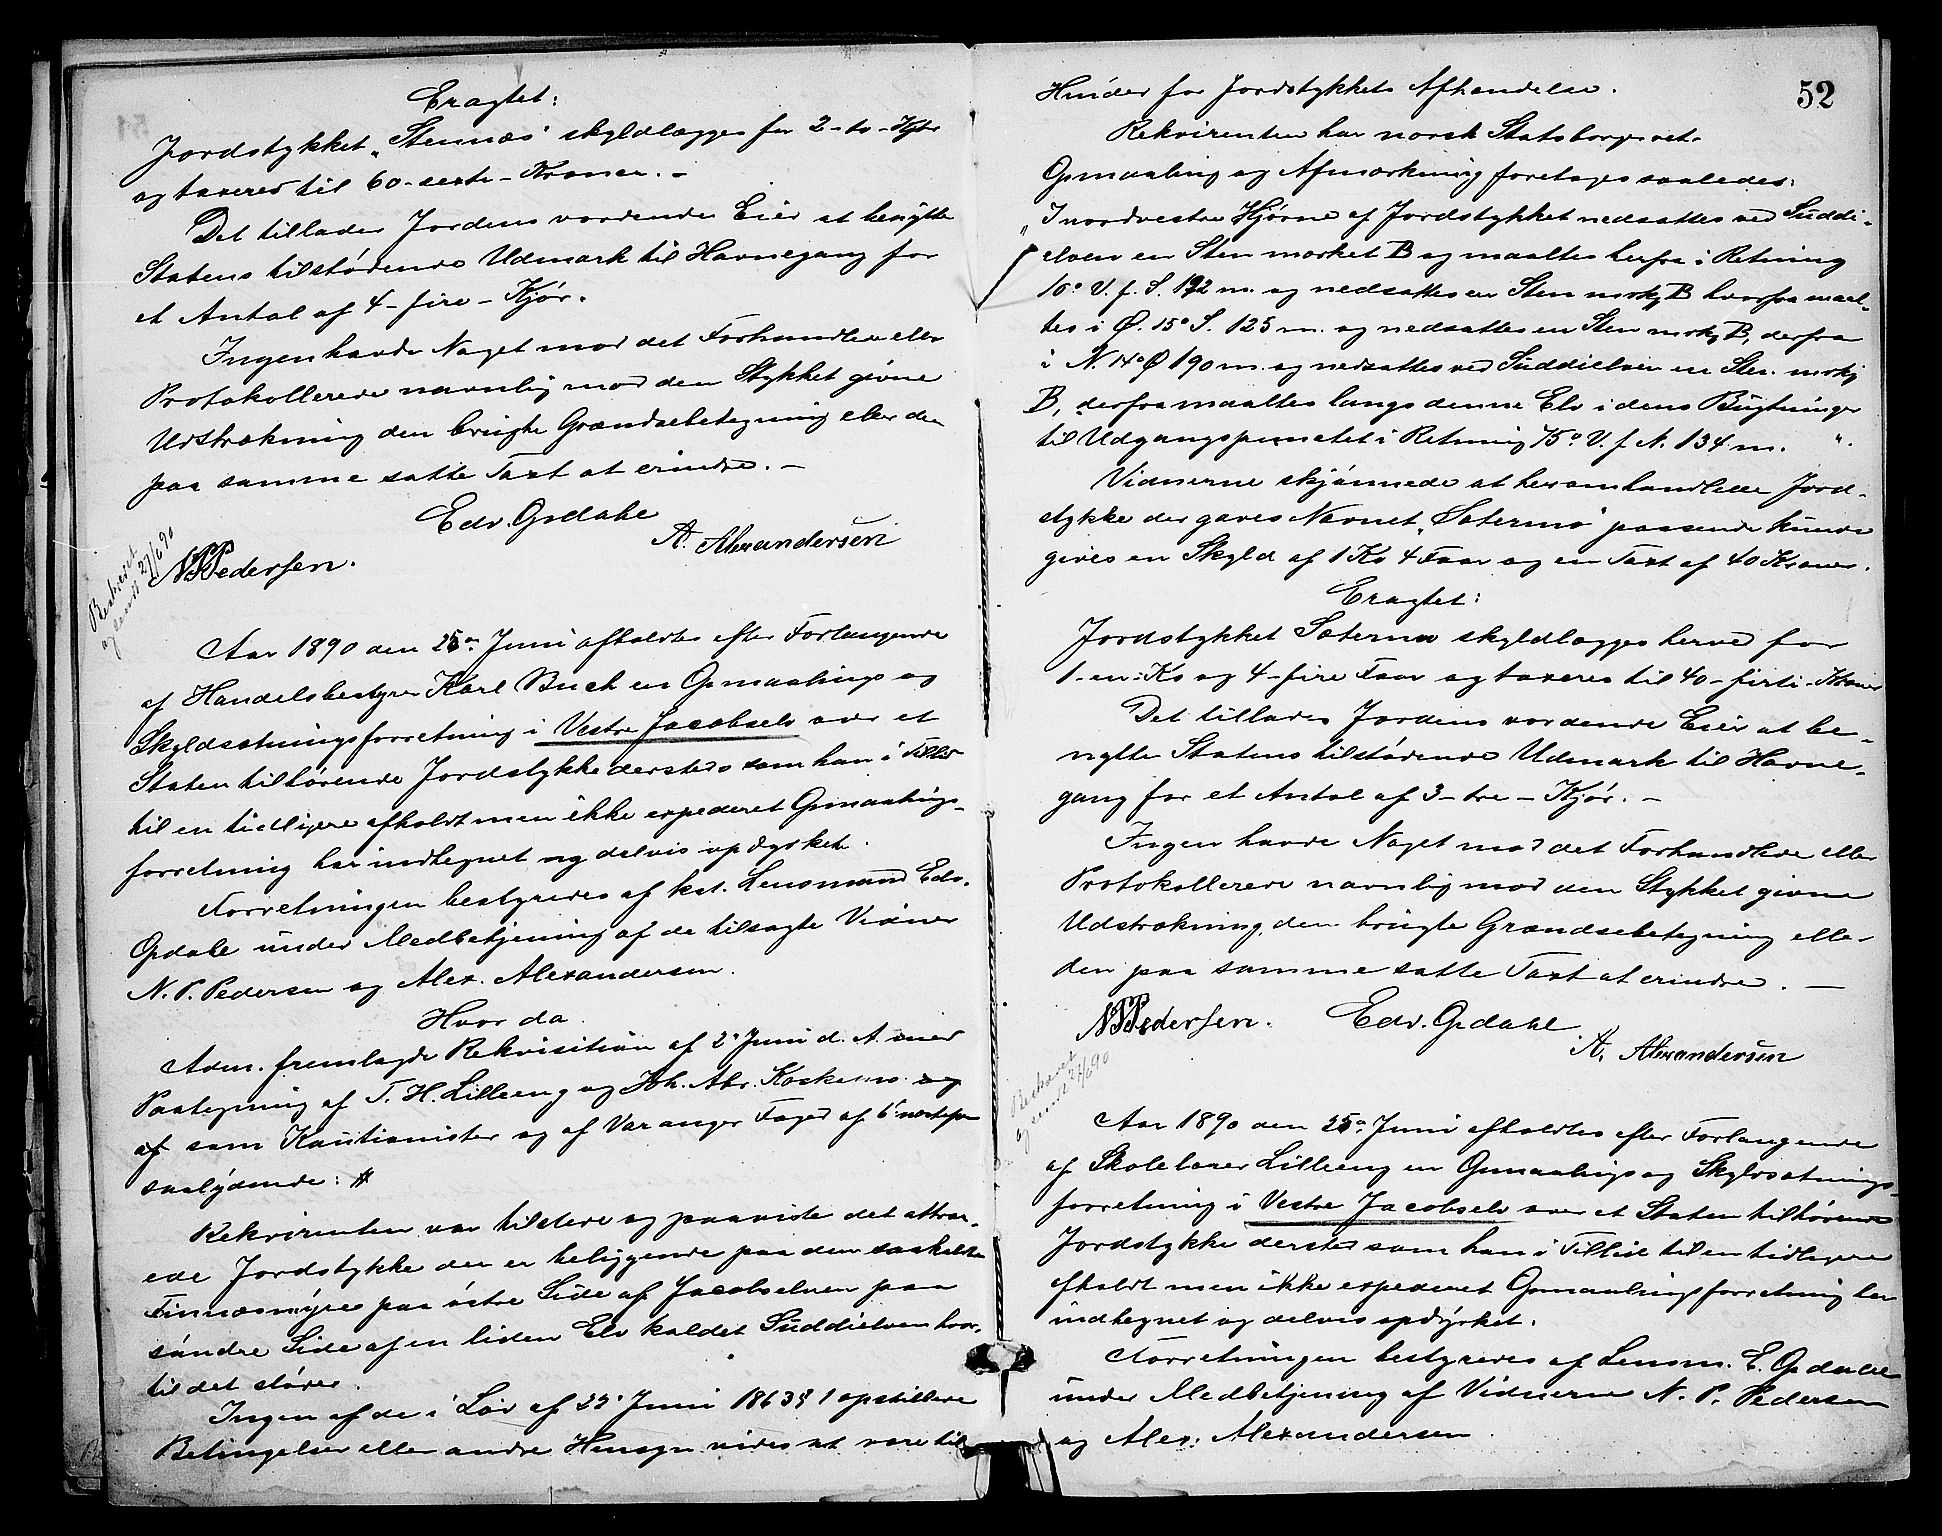 Eragtet:
Jordstykket „Stennæs" skyldlægges for 2-to-Kjør
og taxeres til 60-sexti-Kroner.-
Det tillades Jordens vordende Eier at benytte
Statens tilstødende Udmark til Havnegang for
et Antal af 4-fire-Kjør.
Ingen havde Noget mod det Forhandlede eller
Protokollerede navnlig mod den Stykket givne
Udstrækning den brugte Grændsebetegning eller den
paa samme satte Taxt at erindre.-
Edv. Opdahl
A. Alexandersen
NPPedersen.
Beskrevet
og sendt 27/6 90
Aar 1890 den 25de Juni afholdtes efter Forlangende
af Handelsbestyrer Karl Buch en Opmaalings og
Skyldsætningsforretning i Vestre Jacobselv over et
Staten tilhørende Jordstykke dersteds som han i Tillid
til en tidligere afholdt men ikke expederet Opmaalings-
forretning har indhegnet og delvis opdyrket.
Forretningen bestyredes af kst. Lensmand Edv.
Opdahl under Medbetjening af de tilsagte Vidner
N. P. Pedersen og Alex. Alexandersen.
Hvor da
Adm. fremlagde Rekvisition af 2' Juni d. A. med
Paategning af T. H. Lilleeng og Joh. Abr. Koskamo og
af som Kautionister og af Varanger Foged af 6' næstefter
saalydende: #
Rekvirenten var tilstede og paaviste det attraa-
ede Jordstykke der er beliggende paa den saakaldte
Finnæsmyre paa østre Side af Jacobselven paa
søndre Side af en liden Elv kaldet Suddielven hvor-
til det støder.
Ingen af de i Lov af 22' Juni 1863 § 1 opstillede
Betingelser eller andre Hensyn vides at være til
52
Hinder for Jordstykkets Afhændelse.
Rekvirenten har norsk Statsborgerret.
Opmaaling og Afmærkning foretoges saaledes:
„I nordvestre Hjørne af Jordstykket nedsattes ved Suddi-
elven en Sten mærket B og maaltes herfra i Retning
10° V. f. S. 192 m. og nedsattes en Sten mærk. B hvorfra maal-
tes i Ø. 15° S. 125 m. og nedsattes en Sten mærk. B, derfra
i N. 14° Ø 190 m. og nedsattes ved Suddielven en Sten mærk.
B, derfra maaltes langs denne Elv i dens Bugtninger
til Udgangspunctet i Retning 75° V. f. N. 134 m. ".
Vidnerne skjønnede at heromhandlede Jord-
stykke der gaves Navnet „Sætermo" passende kunde
gives en Skyld af 1 Ko 4 Faar og en Taxt af 40 Kroner.
Eragtet:
Jordstykket Sætermo skyldlægges herved for
1-en-Ko og 4-fire Faar og taxeres til 40-firti-Kroner
Det tillades Jordens vordende Eier at be-
nytte Statens tilstødende Udmark til Havne-
gang for et Antal af 3-tre-Kjør.-
Ingen havde Noget mod det Forhandlede eller
Protokollerede navnlig mod den Stykket givne
Udstrækning, den brugte Grændsebetegning eller
den paa samme satte Taxt at erindre.-
NPPedersen. Edv. Opdahl
A. Alexandersen
Beskrevet
og sendt 27/6 90
Aar 1890 den 25de Juni afholdtes efter Forlangende
af Skolelærer Lilleeng en Opmaalings og Skyldsætnings-
forretning i Vestre Jacobselv over et Staten tilhørende
Jordstykke dersted som han i Tillid til en tidligere
afholdt men ikke expederet Opmaalingsforretning har
indhegnet og delvis opdyrket.
Forretningen bestyredes af Lensm. E. Opdahl
under Medbetjening af Vidnerne N. P. Pedersen
og Alex. Alexandersen.